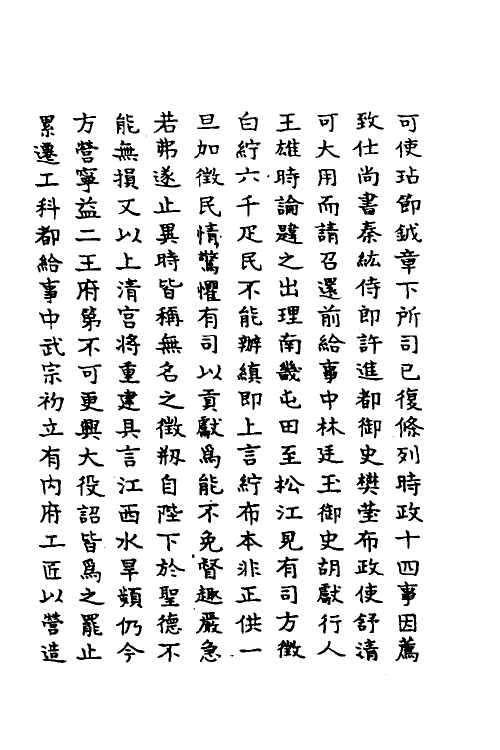 可使玷節鉞章下所司已復條列時政十四事因薦
致仕尚書秦紘侍郎許進都御史樊瑩布政使舒清
可大用而請召還前給事中林廷玉御史胡獻行人
王雄時論韙之出理南畿屯田至松江見有司方徵
白紵六千疋民不能辦縝即上言紵布本非正供一
旦加徵民情驚懼有司以貢獻爲能不免督趣嚴急
若弗遂止異時皆稱無名之徵剏自陛下於聖德不
能無損又以上清宮將重建具言江西水旱頻仍今
方營寧益二王府第不可更興大役詔皆爲之罷止
累遷工科都給事中武宗初立有內府工匠以營造